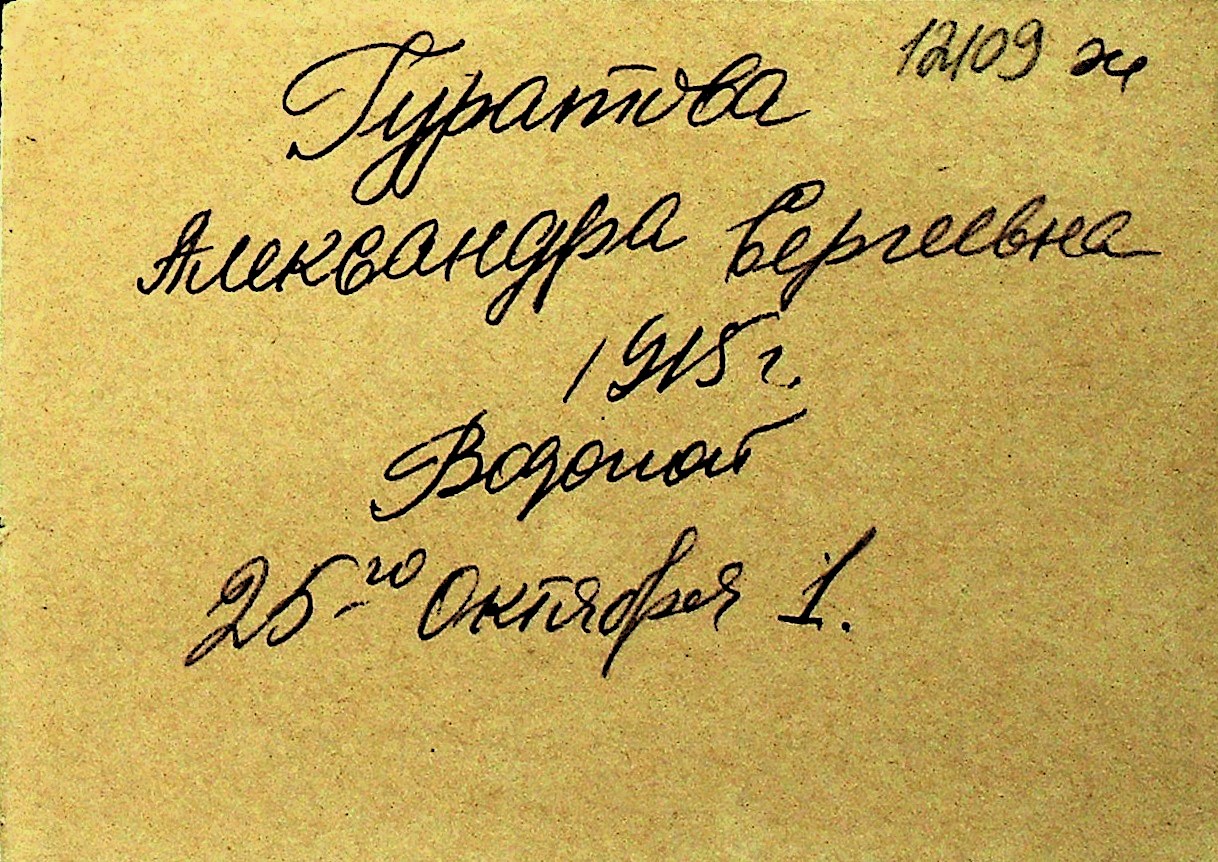 12109 ж
Гуратова
Александра Сергеевна
1915 г.
Водопой
25-го Октября 1.